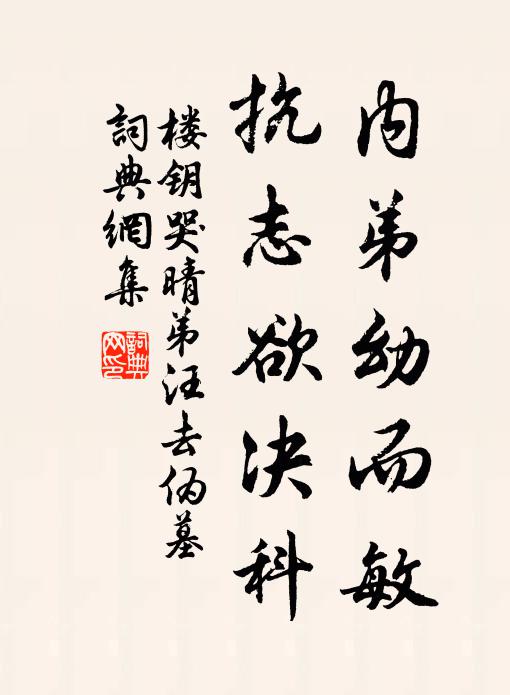 内弟幼而敏
抗志欲决科
楼钥哭晴弟汪去伪墓
詞典網集
詞典网印